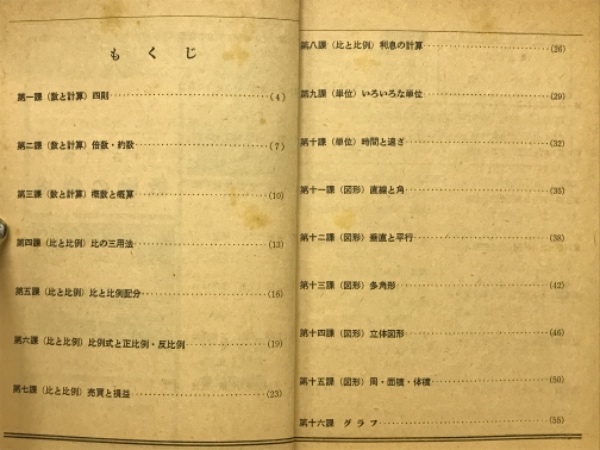 もくじ
第一課（数と計算）四則……………(4)
第二課（数と計算）倍数・約数……………(7)
第三課（数と計算）概数と概算……………(10)
第四課（比と比例）比の三用法……………(13)
第五課（比と比例）比と比例配分……………(16)
第六課（比と比例）比例式と正比例・反比例……………(19)
第七課（比と比例）売買と損益……………(23)
第八課（比と比例）利息の計算……………(26)
第九課（単位）いろいろな単位……………(29)
第十課（単位）時間と速さ……………(32)
第十一課（図形）直線と角……………(35)
第十二課（図形）垂直と平行……………(38)
第十三課（図形）多角形……………(42)
第十四課（図形）立体図形……………(46)
第十五課（図形）周・面積・体積……………(50)
第十六課　グラフ……………(55)